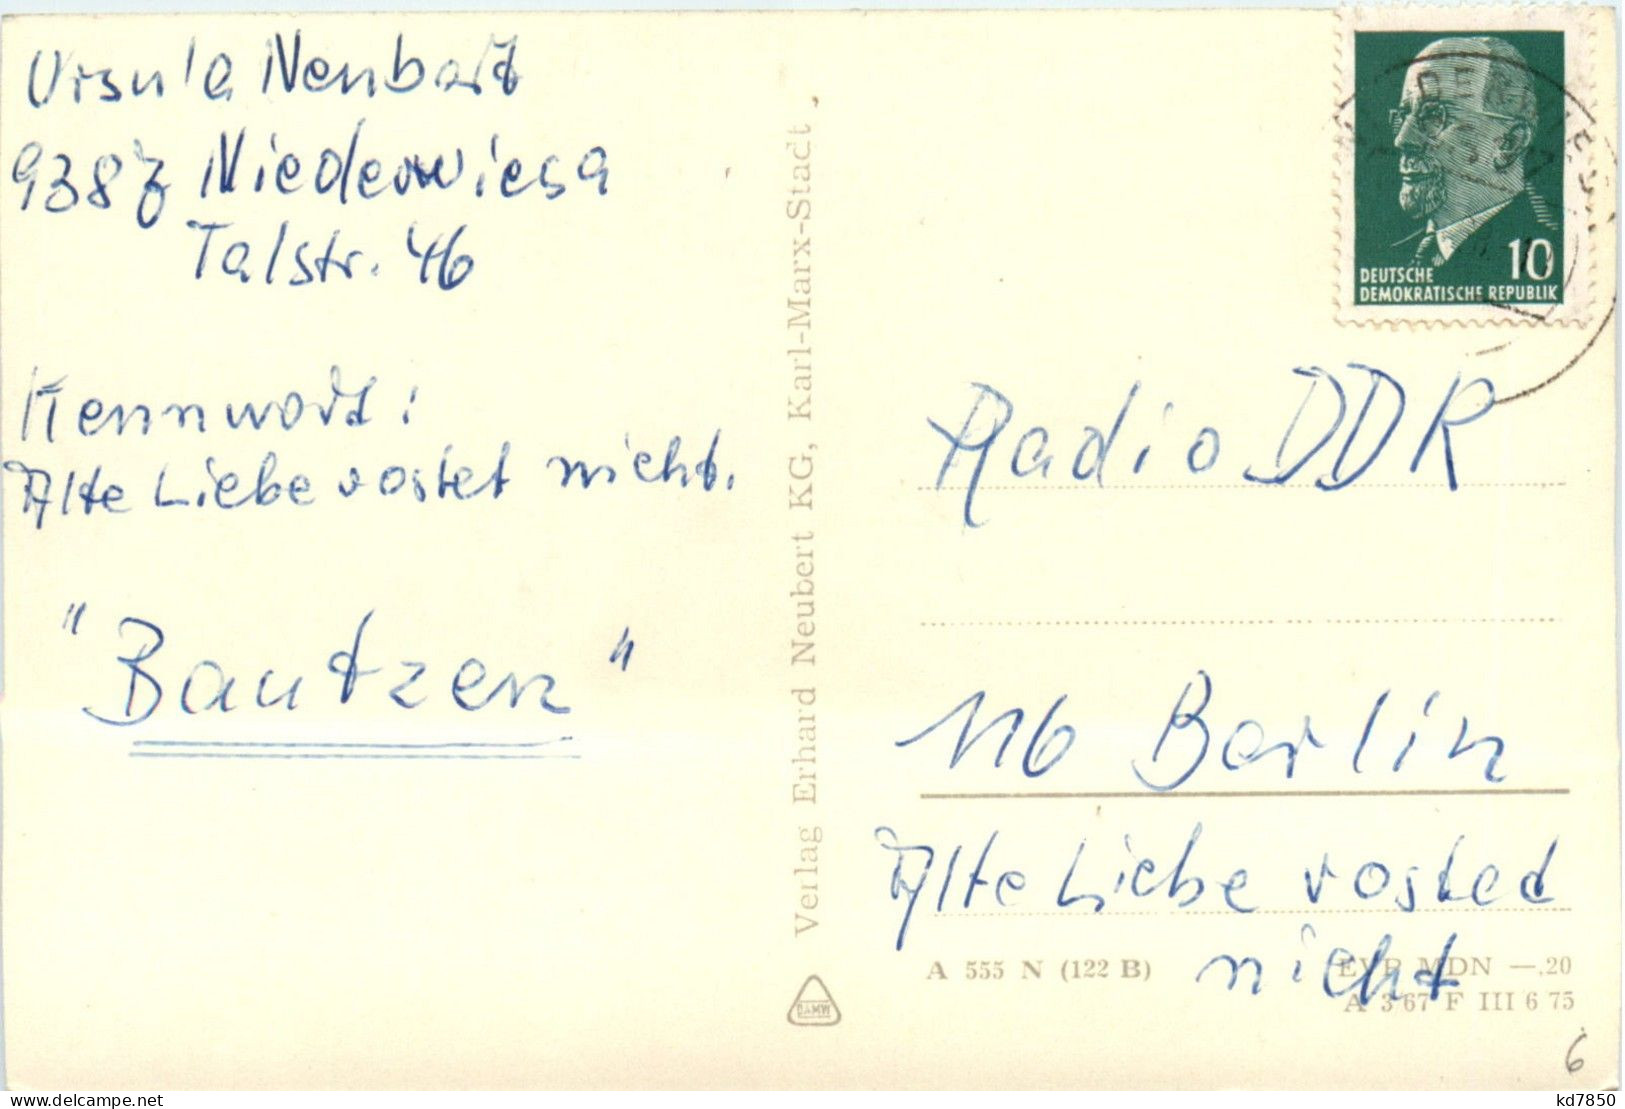 Ursula Neubert
9387 Niederwiesa
Talstr. 46
Kennwort:
Alte Liebe rostet nicht.
"Bautzen"
Verlag Erhard Neubert KG, Karl-Marx-Stadt
DAMW
10
DEUTSCHE
DEMOKRATISCHE REPUBLIK
Radio DDR
116 Berlin
Alte Liebe rostet
nicht
A 555 N (122 B)
EVP MDN —,20
A 3 67 F III 6 75
6
kd7850